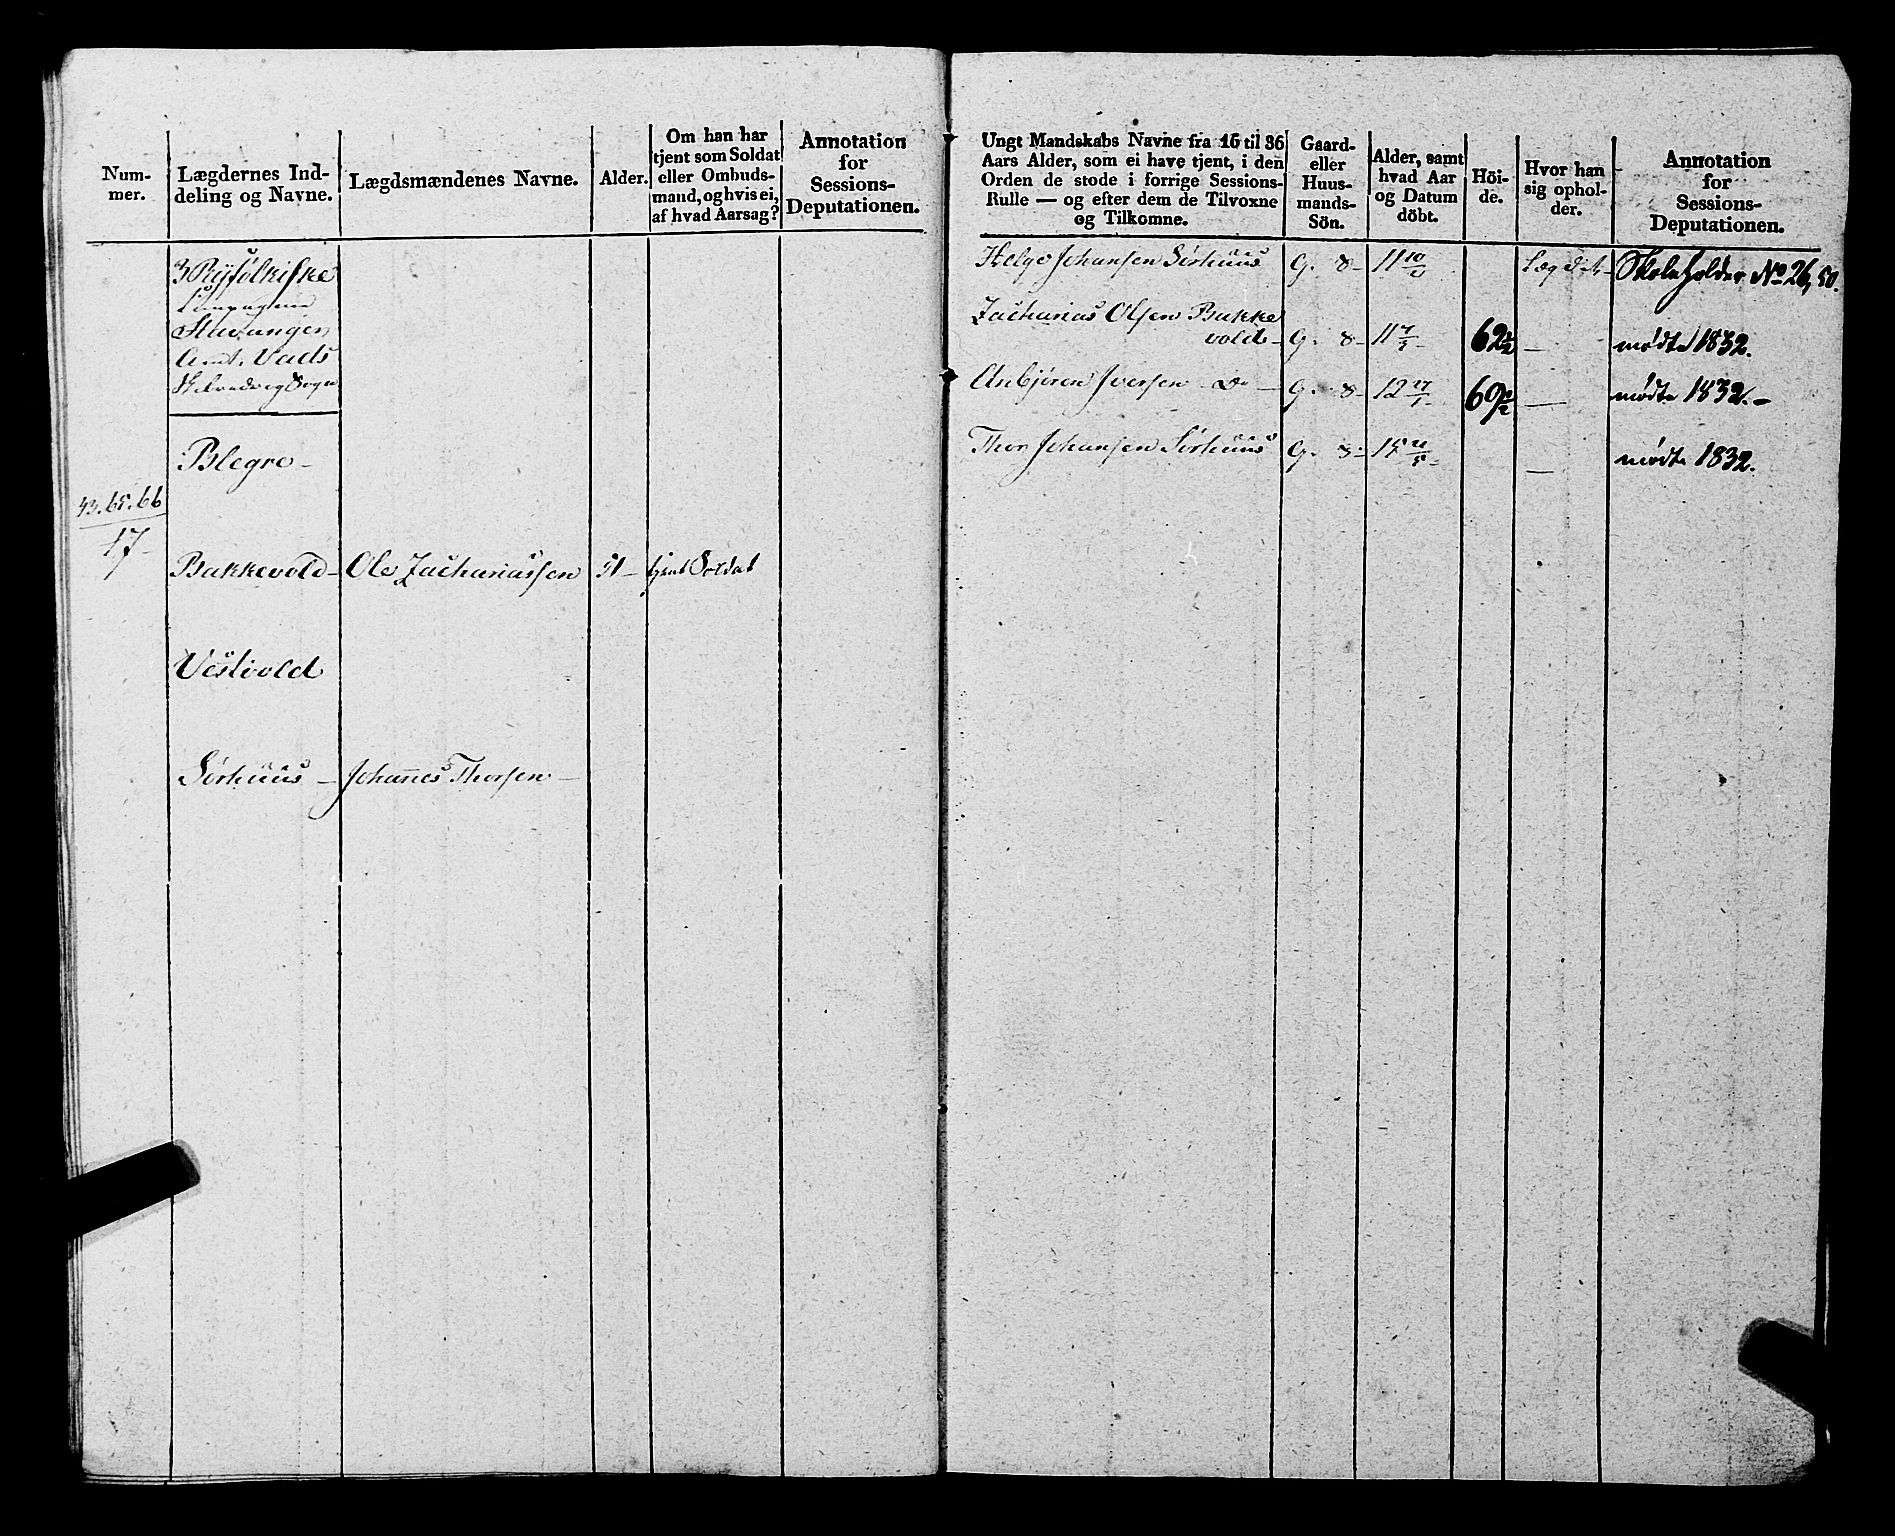 Num-
mer.
Lægdernes Ind-
deling og Navne.
Lægdsmændenes Navne.
Alder.
Om han har
tjent som Soldat
eller Ombuds-
mand, og hvis ei,
af hvad Aarsag?
Annotation
for
Sessions-
Deputationen.
3 Ryfølkiske
Compagnie
Stavanger
Amt. Vads
Skredsvig Sogn
Blegre -
43. 65. 66
17 -
Bakkevold - Ole Zachariassen 51 - tjent Soldat
Vestvold
Sørhuus - Johannes Thorsen -
Ungt Mandskabs Navne fra 16 til 36
Aars Alder, som ei have tjent, i den
Orden de stode i forrige Sessions-
Rulle — og efter dem de Tilvoxne
og Tilkomne.
Gaard-
eller
Huus-
mands-
Sön.
Alder, samt
hvad Aar
og Datum
döbt.
Höi-
de.
Hvor han
sig ophol-
der.
Annotation
for
Sessions-
Deputationen.
Helge Johansen Sørhuus G. S - 11 Lægdet - Skoleholder No 26, 50.
Zacharias Olsen Bakke
vold - G. S - 11 7/3 - 62 1/2 - mødte 1832.
Anbjøren Iversen - Do - G. S - 12 27/1 - 60 1/2 - mødte 1832. -
Thor Johansen Sørhuus G. S - 15 - - mødte 1832.